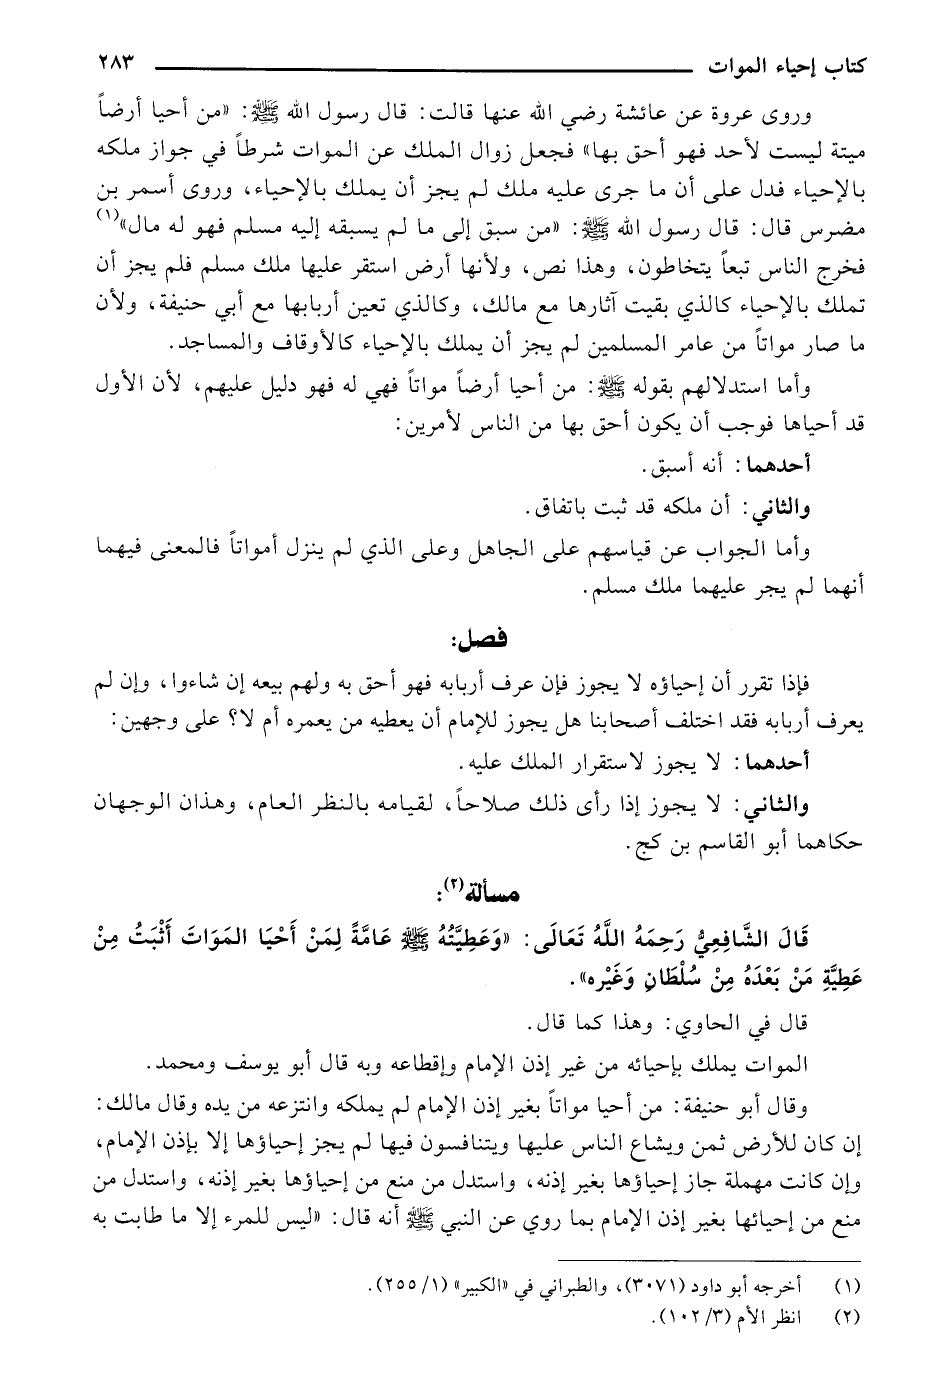 كتاب إحياء الموات ٢٨٣
وروى عروة عن عائشة رضي الله عنها قالت: قال رسول الله ﷺ: «من أحيا أرضاً
ميتة ليست لأحد فهو أحق بها» فجعل زوال الملك عن الموات شرطاً في جواز ملكه
بالإحياء فدل على أن ما جرى عليه ملك لم يجز أن يملك بالإحياء، وروى أسمر بن
مضرس قال: قال رسول الله ﷺ: «من سبق إلى ما لم يسبقه إليه مسلم فهو له مال»(١)
فخرج الناس تبعاً يتخاطون، وهذا نص، ولأنها أرض استقر عليها ملك مسلم فلم يجز أن
تملك بالإحياء كالذي بقيت آثارها مع مالك، وكالذي تعين أربابها مع أبي حنيفة، ولأن
ما صار مواتاً من عامر المسلمين لم يجز أن يملك بالإحياء كالأوقاف والمساجد.
وأما استدلالهم بقوله ﷺ: من أحيا أرضاً مواتاً فهي له فهو دليل عليهم، لأن الأول
قد أحياها فوجب أن يكون أحق بها من الناس لأمرين:
أحدهما: أنه أسبق.
والثاني: أن ملكه قد ثبت باتفاق.
وأما الجواب عن قياسهم على الجاهل وعلى الذي لم ينزل أمواتاً فالمعنى فيهما
أنهما لم يجر عليهما ملك مسلم.
فصل:
فإذا تقرر أن إحياؤه لا يجوز فإن عرف أربابه فهو أحق به ولهم بيعه إن شاءوا، وإن لم
يعرف أربابه فقد اختلف أصحابنا هل يجوز للإمام أن يعطيه من يعمره أم لا؟ على وجهين:
أحدهما: لا يجوز لاستقرار الملك عليه.
والثاني: لا يجوز إذا رأى ذلك صلاحاً، لقيامه بالنظر العام، وهذان الوجهان
حكاهما أبو القاسم بن كج.
مسألة(٢):
قَالَ الشَّافِعِيُّ رَحِمَهُ اللَّهُ تَعَالَى: «وَعَطِيَّتُهُ ﷺ عَامَّةً لِمَنْ أَحْيَا المَوَاتَ أَثْبَتُ مِنْ
عَطِيَّةِ مَنْ بَعْدَهُ مِنْ سُلْطَانٍ وَغَيْرِه».
قال في الحاوي: وهذا كما قال.
الموات يملك بإحيائه من غير إذن الإمام وإقطاعه وبه قال أبو يوسف ومحمد.
وقال أبو حنيفة: من أحيا مواتاً بغير إذن الإمام لم يملكه وانتزعه من يده وقال مالك:
إن كان للأرض ثمن ويشاع الناس عليها ويتنافسون فيها لم يجز إحياؤها إلا بإذن الإمام،
وإن كانت مهملة جاز إحياؤها بغير إذنه، واستدل من منع من إحياؤها بغير إذنه، واستدل من
منع من إحيائها بغير إذن الإمام بما روي عن النبي ﷺ أنه قال: «ليس للمرء إلا ما طابت به
(١) أخرجه أبو داود (٣٠٧١)، والطبراني في «الكبير» (١/ ٢٥٥).
(٢) انظر الأم (٣/ ١٠٢).